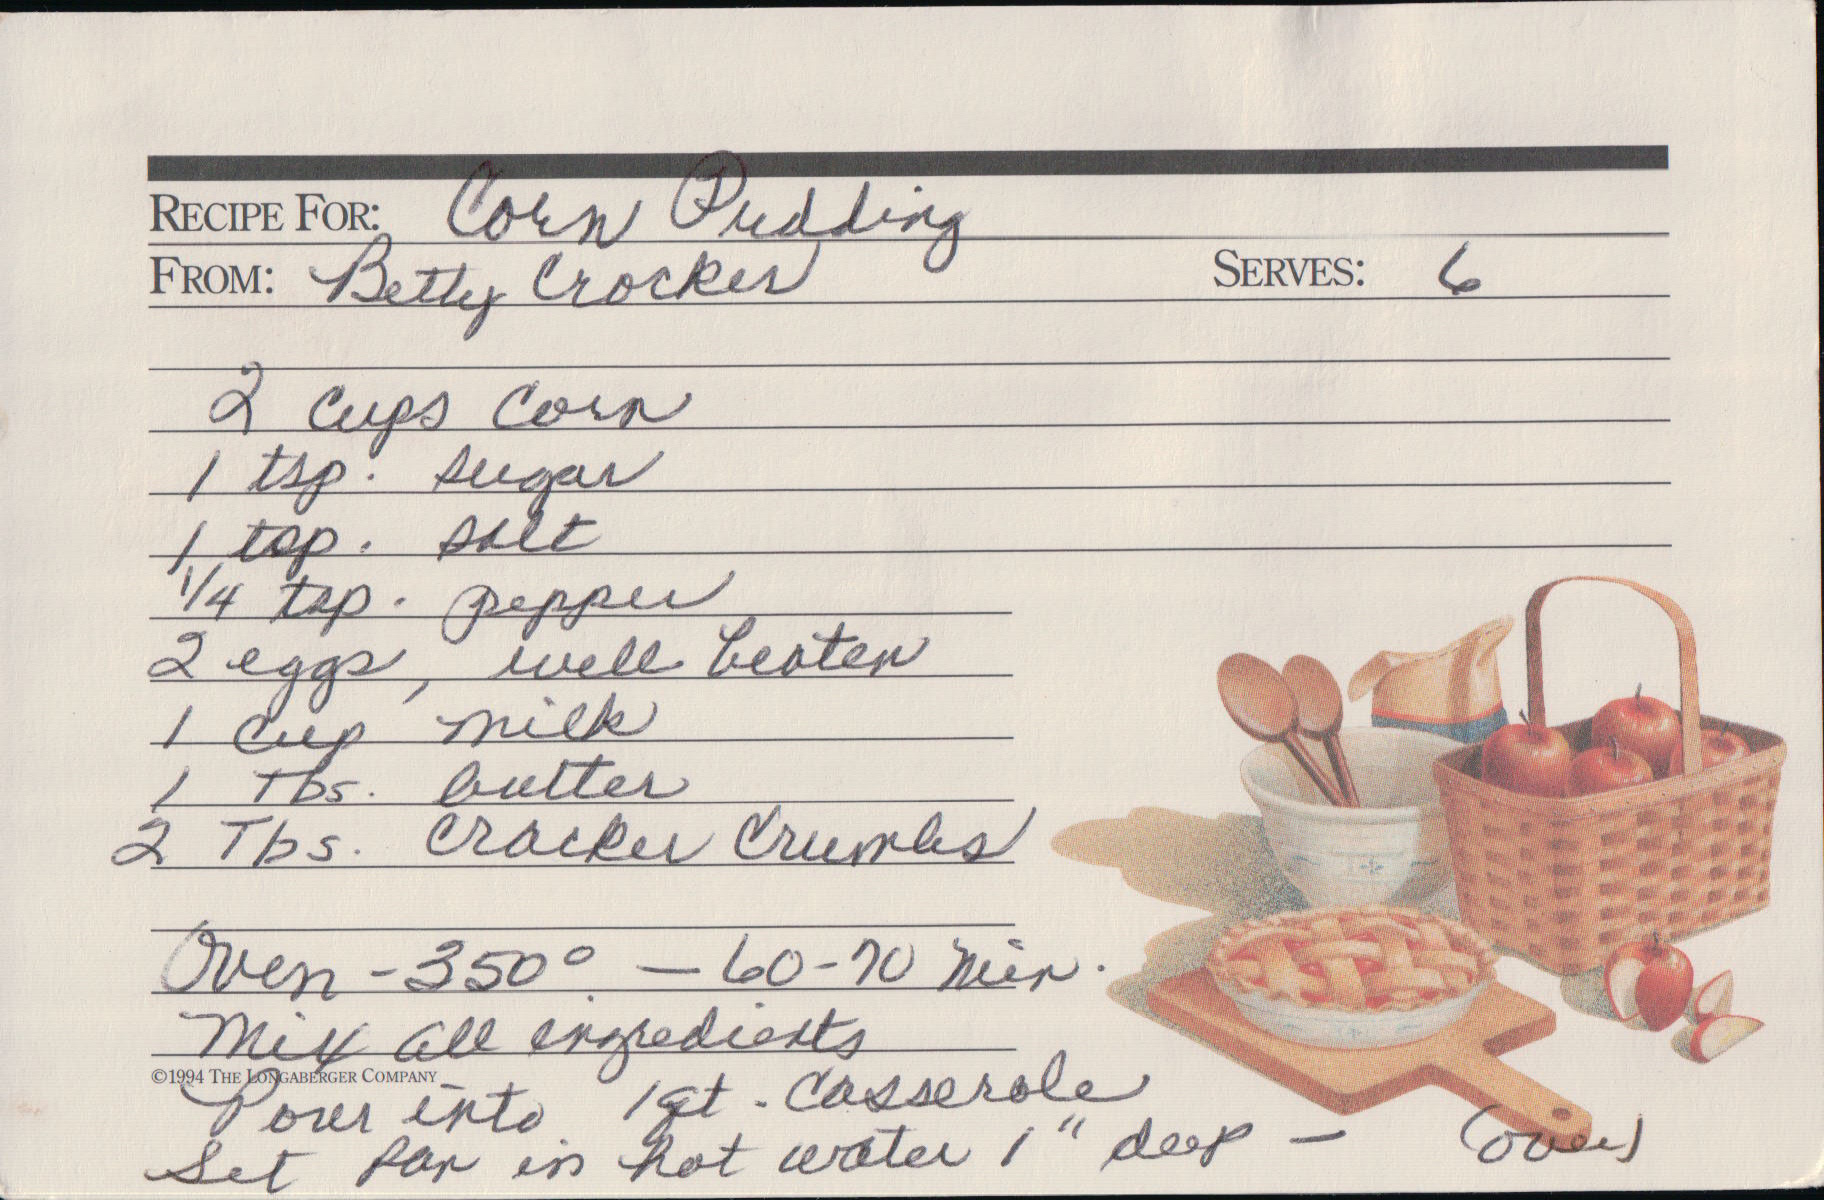 RECIPE FOR: Corn Pudding
FROM: Betty Crocker SERVES: 6
2 cups corn
1 tsp. sugar
1 tsp. salt
1/4 tsp. pepper
2 eggs, well beaten
1 cup milk
1 Tbs. butter
2 Tbs. cracker crumbs
Oven - 350° — 60-70 min.
Mix all ingredients
©1994 THE LONGABERGER COMPANY
Pour into 1 qt. casserole
Set pan in hot water 1" deep — (over)